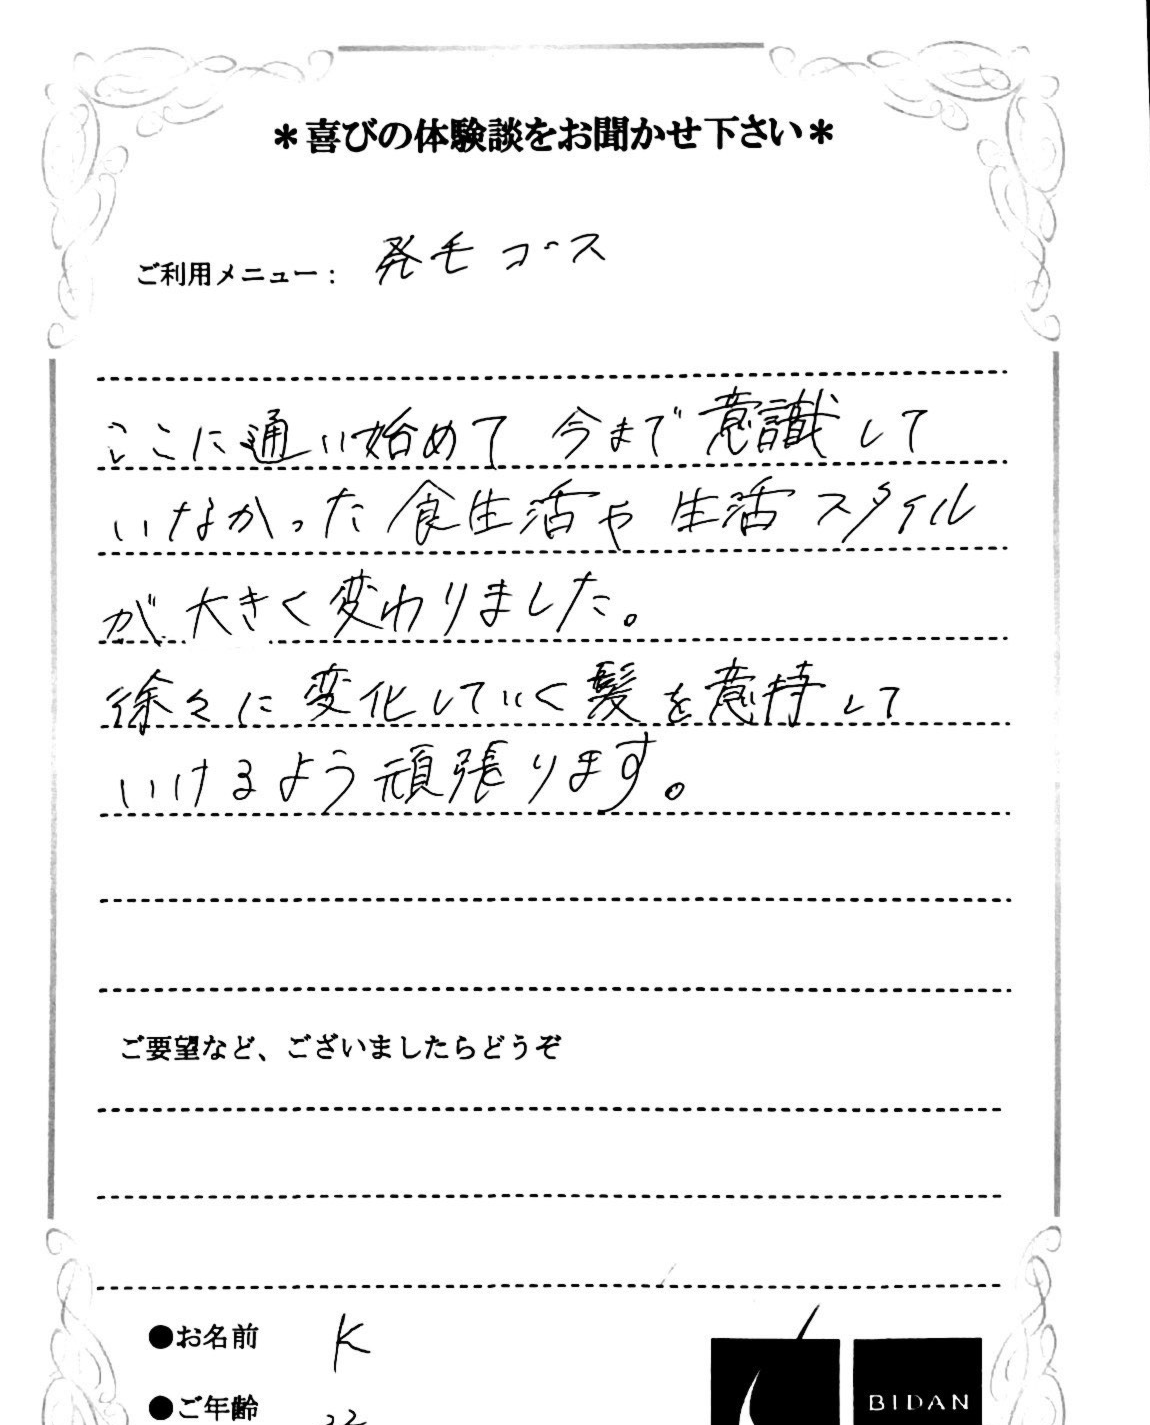 ＊喜びの体験談をお聞かせ下さい＊
ご利用メニュー： 発毛コース
ここに通い始めて 今まで意識して
いなかった食生活や生活スタイル
が大きく変わりました。
徐々に変化していく髪を意持して
いけるよう頑張ります。
ご要望など、ございましたらどうぞ
●お名前 K
●ご年齢
BIDAN